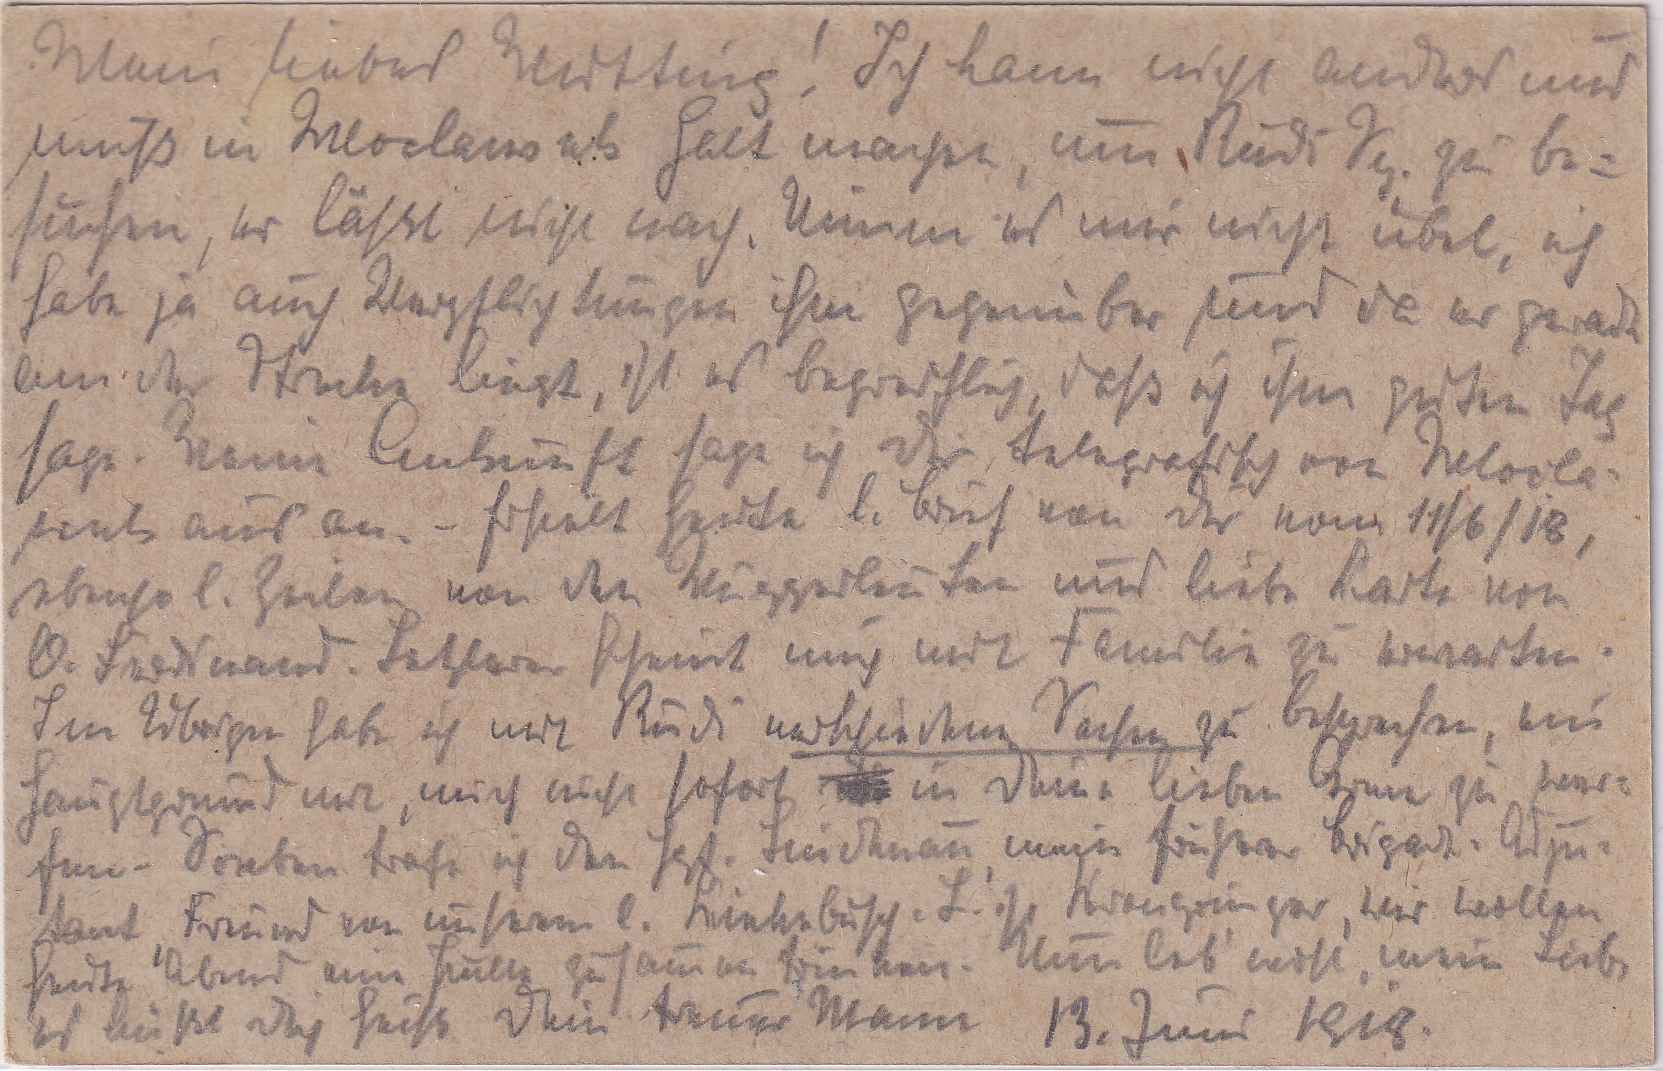 Mein liebes Mutting! Ich kann nicht anders und
muß in Wloclawek halt machen, um Rudi Sch. zu be-
suchen, er läßt nicht nach. Nimm es mir nicht übel, ich
habe ja auch Verpflichtungen ihm gegenüber und da er gerade
an der Strecke liegt, ist es begreiflich, daß ich ihm guten Tag
sage. Meine Ankunft sage ich Dir telegrafisch von Wlocla-
wek aus an. – Erhielt heute l. Brief von Dir vom 11/6/18,
ebenso l. Zeilen von den und liebe Karte von
O. Ferdinand. Letzterer scheint mich mit Familie zu erwarten.
Im Übrigen habe ich mit Rudi verschiedene Sachen zu besprechen, ein
Hauptgrund mit, mich nicht sofort in Deine lieben Arme zu wer-
fen. – Soeben traf ich den Lindenau, mein früherer Brigade-Adju-
tant, Freund von unserem l. Winkebusch. L. ist, wir wollen
heute Abend eine Hülle zusammen trinken. Nun leb wohl, mein Lieb,
es küßt Dich heiß Dein treuer Mann 13. Juni 1918.